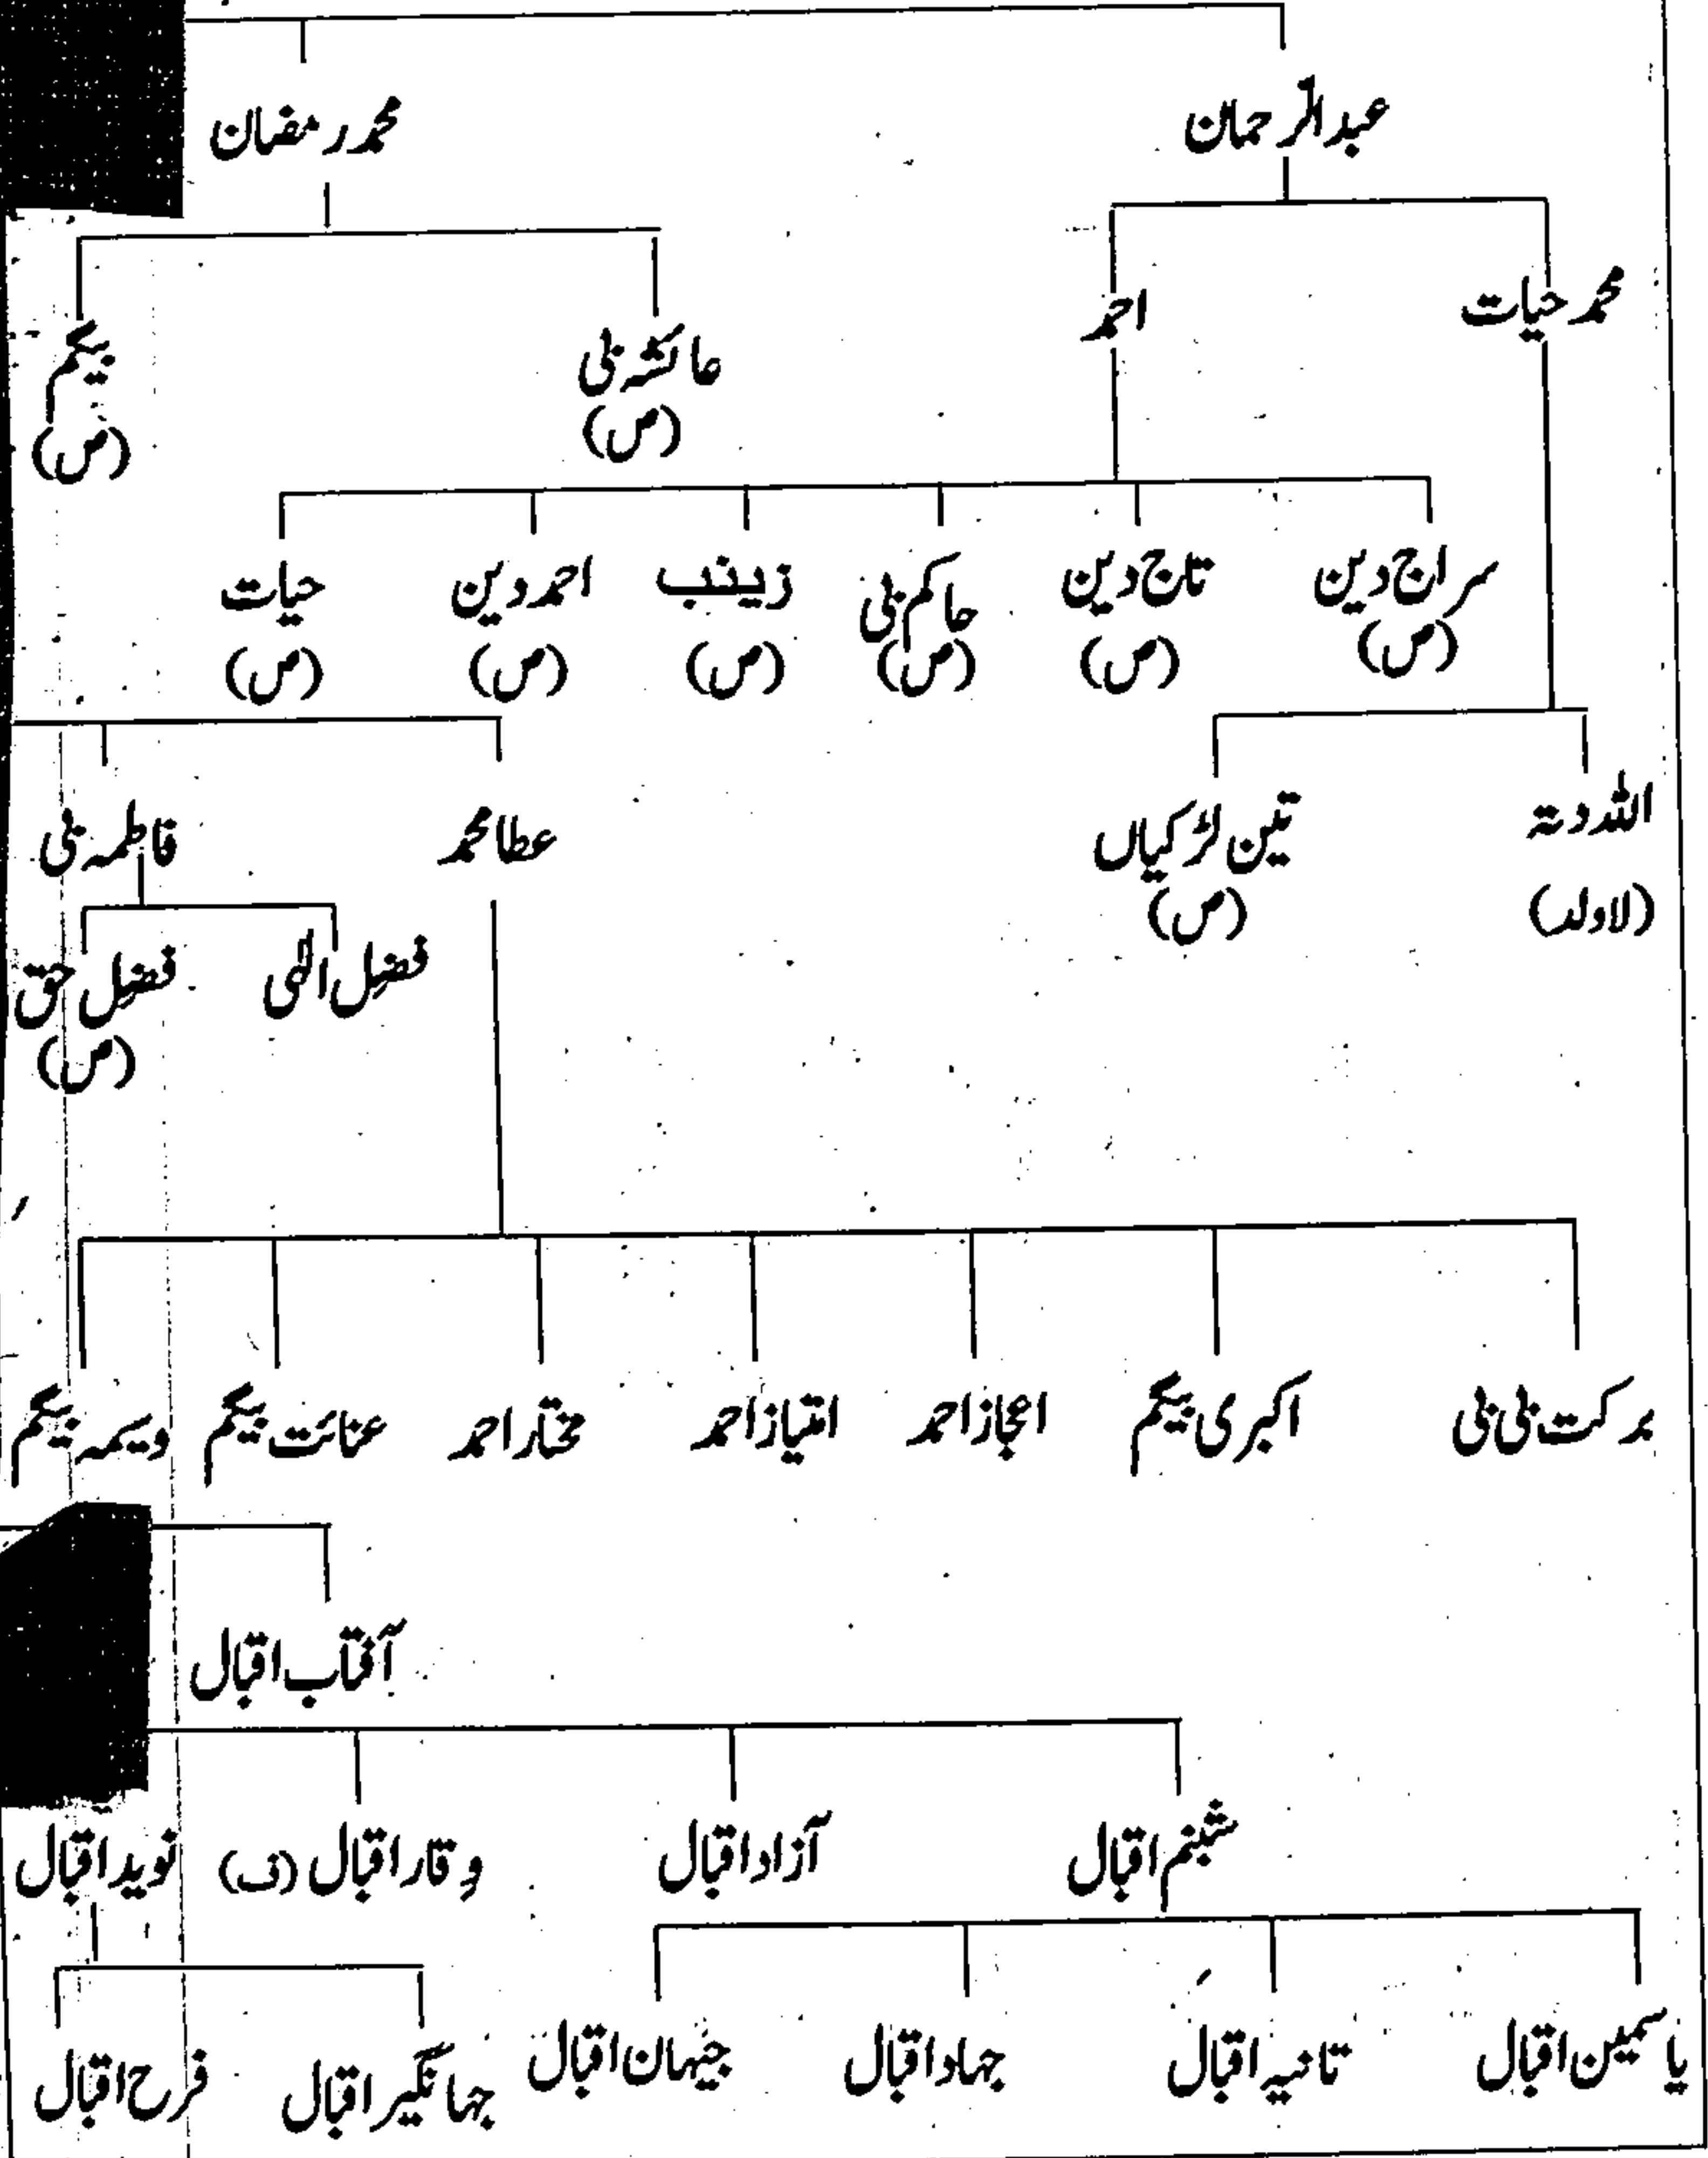 عبدالرحمان محمد رمضان
محمد حیات احمد عائشہ بی بیگم
(ص) (ص)
سراج دین تاج دین حاکم بی زینب احمد دین حیات
(ص) (ص) (ص) (ص) (ص) (ص)
اللہ دتہ تین لڑکیاں عطا محمد فاطمہ بی
(لاولد) (ص)
فضل الٰہی فضل حق
(ص)
برکت بی بی اکبری بیگم اعجاز احمد امتیاز احمد مختار احمد عنائت بیگم وسیمہ بیگم
آفتاب اقبال
شبنم اقبال آزاد اقبال وقار اقبال (ف) نوید اقبال
یاسمین اقبال تانیہ اقبال جہاد اقبال جیہان اقبال جہانگیر اقبال فرح اقبال